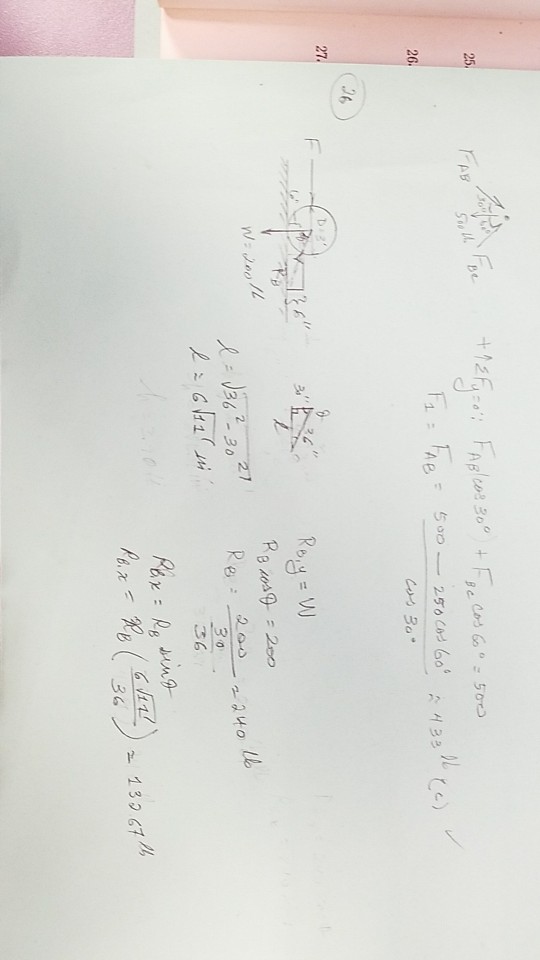 25.
26.
27.
F_AB
30° 60°
500 lb
F_BC
+↑ΣF_y=0; F_AB(cos30°) + F_BC cos60° = 500
F_1 = F_AB = 500 - 250cos60° / cos30° = 433 lb (C) ✓
26
F
6"
W = 200 lb
R_B
30"
36"
θ
l
l = √36² - 30²
l = 6√11 in
R_B,y = W
R_B cosθ = 200
R_B = 200 / 30/36 = 240 lb
R_B,x = R_B sinθ
R_B,x = R_B (6√11 / 36) = 132.67 lb